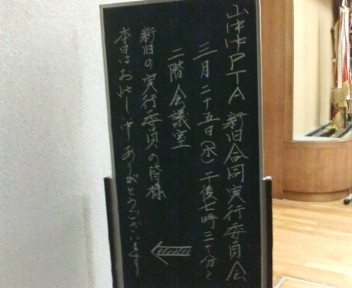 PTA 新旧合同実行委員会
三月二十五日(水)午後七時三十分
二階会議室
新旧の実行委員の皆様
本日はお忙し中ありがとうございます